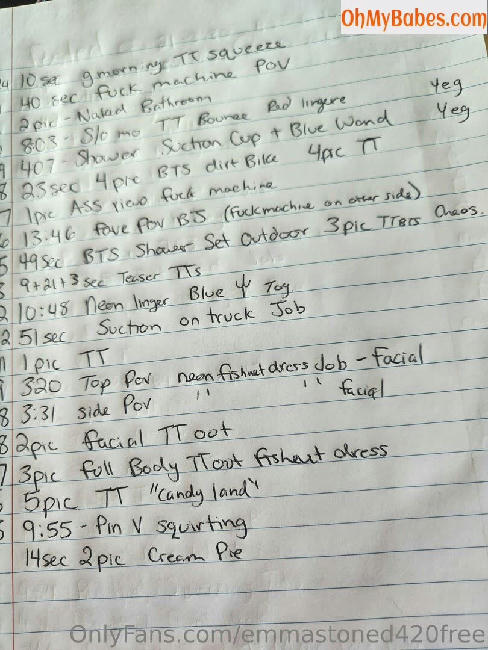 OhMyBabes.com
10 sec gmorning TT squeeze
40 sec fuck machine POV
2pic - Naked Bathroom
8:03 - S/o mo TT Bounce Red lingere yeg
407 - Shower Suction Cup + Blue Wand yeg
25sec 4pic BTS dirt Bike 4pic TT
1pic Ass view fuck machine
13:46 fave POV BJ (fuck machine on other side)
49sec BTS Shower Set Outdoor 3pic TTBTS Chaos.
9+21+3sec Teaser TTs
10:48 Neon linger Blue Toy
51sec Suction on truck Job
1pic TT
320 Top Pov neon fishnet dress Job - facial
3:31 side Pov " " facial
2pic facial TT out
3pic full Body TT out fishnet dress
5pic TT "Candy land"
9:55 - Pin V squirting
14sec 2pic Cream Pie
OnlyFans.com/emmastoned420free